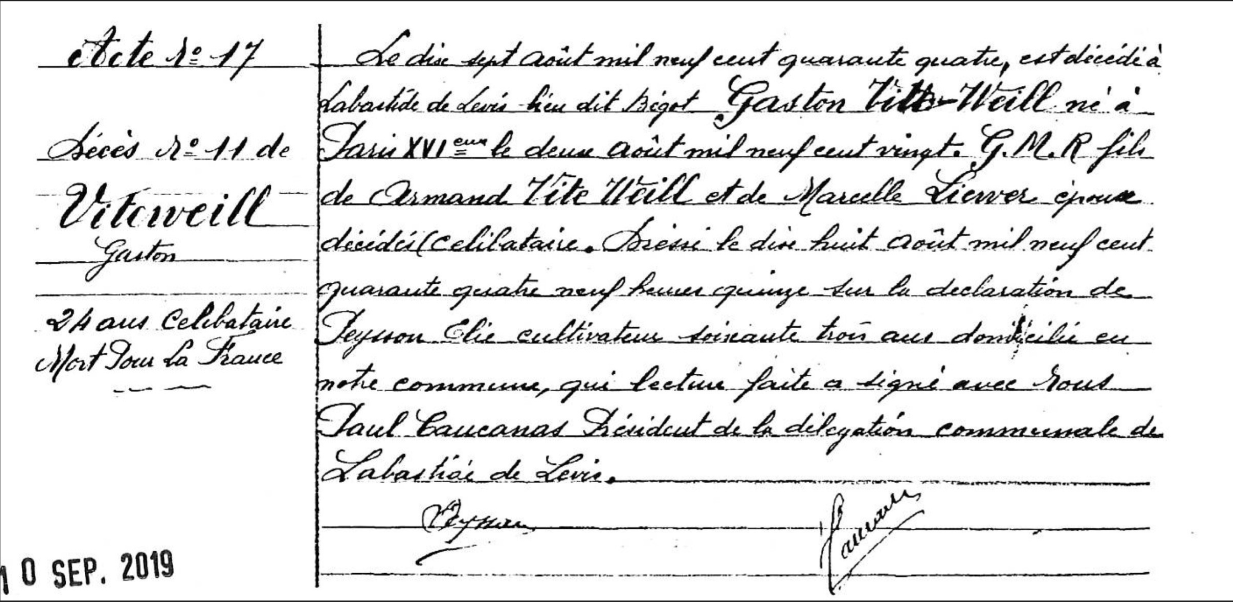 Acte No 17
Décès No 11 de
Viteweill
Gaston
24 ans Celibataire
Mort Pour La France
Le dix sept Août mil neuf cent quarante quatre, est décédé à
Labastide de Levis lieu dit Bégot Gaston Vite-Weill né à
Paris XVI eme le deux Août mil neuf cent vingt. G.M.R fils
de Armand Vite Weill et de Marcelle époux
décédés (Celibataire. Dressé le dix huit Août mil neuf cent
quarante quatre neuf heures quinze sur la declaration de
Peysson Elie cultivateur soixante trois ans domicilié en
notre commune, qui lecture faite a signé avec Nous
Paul Caucanas Président de la délégation communale de
Labastide de Levis.
Peysson
10 SEP. 2019